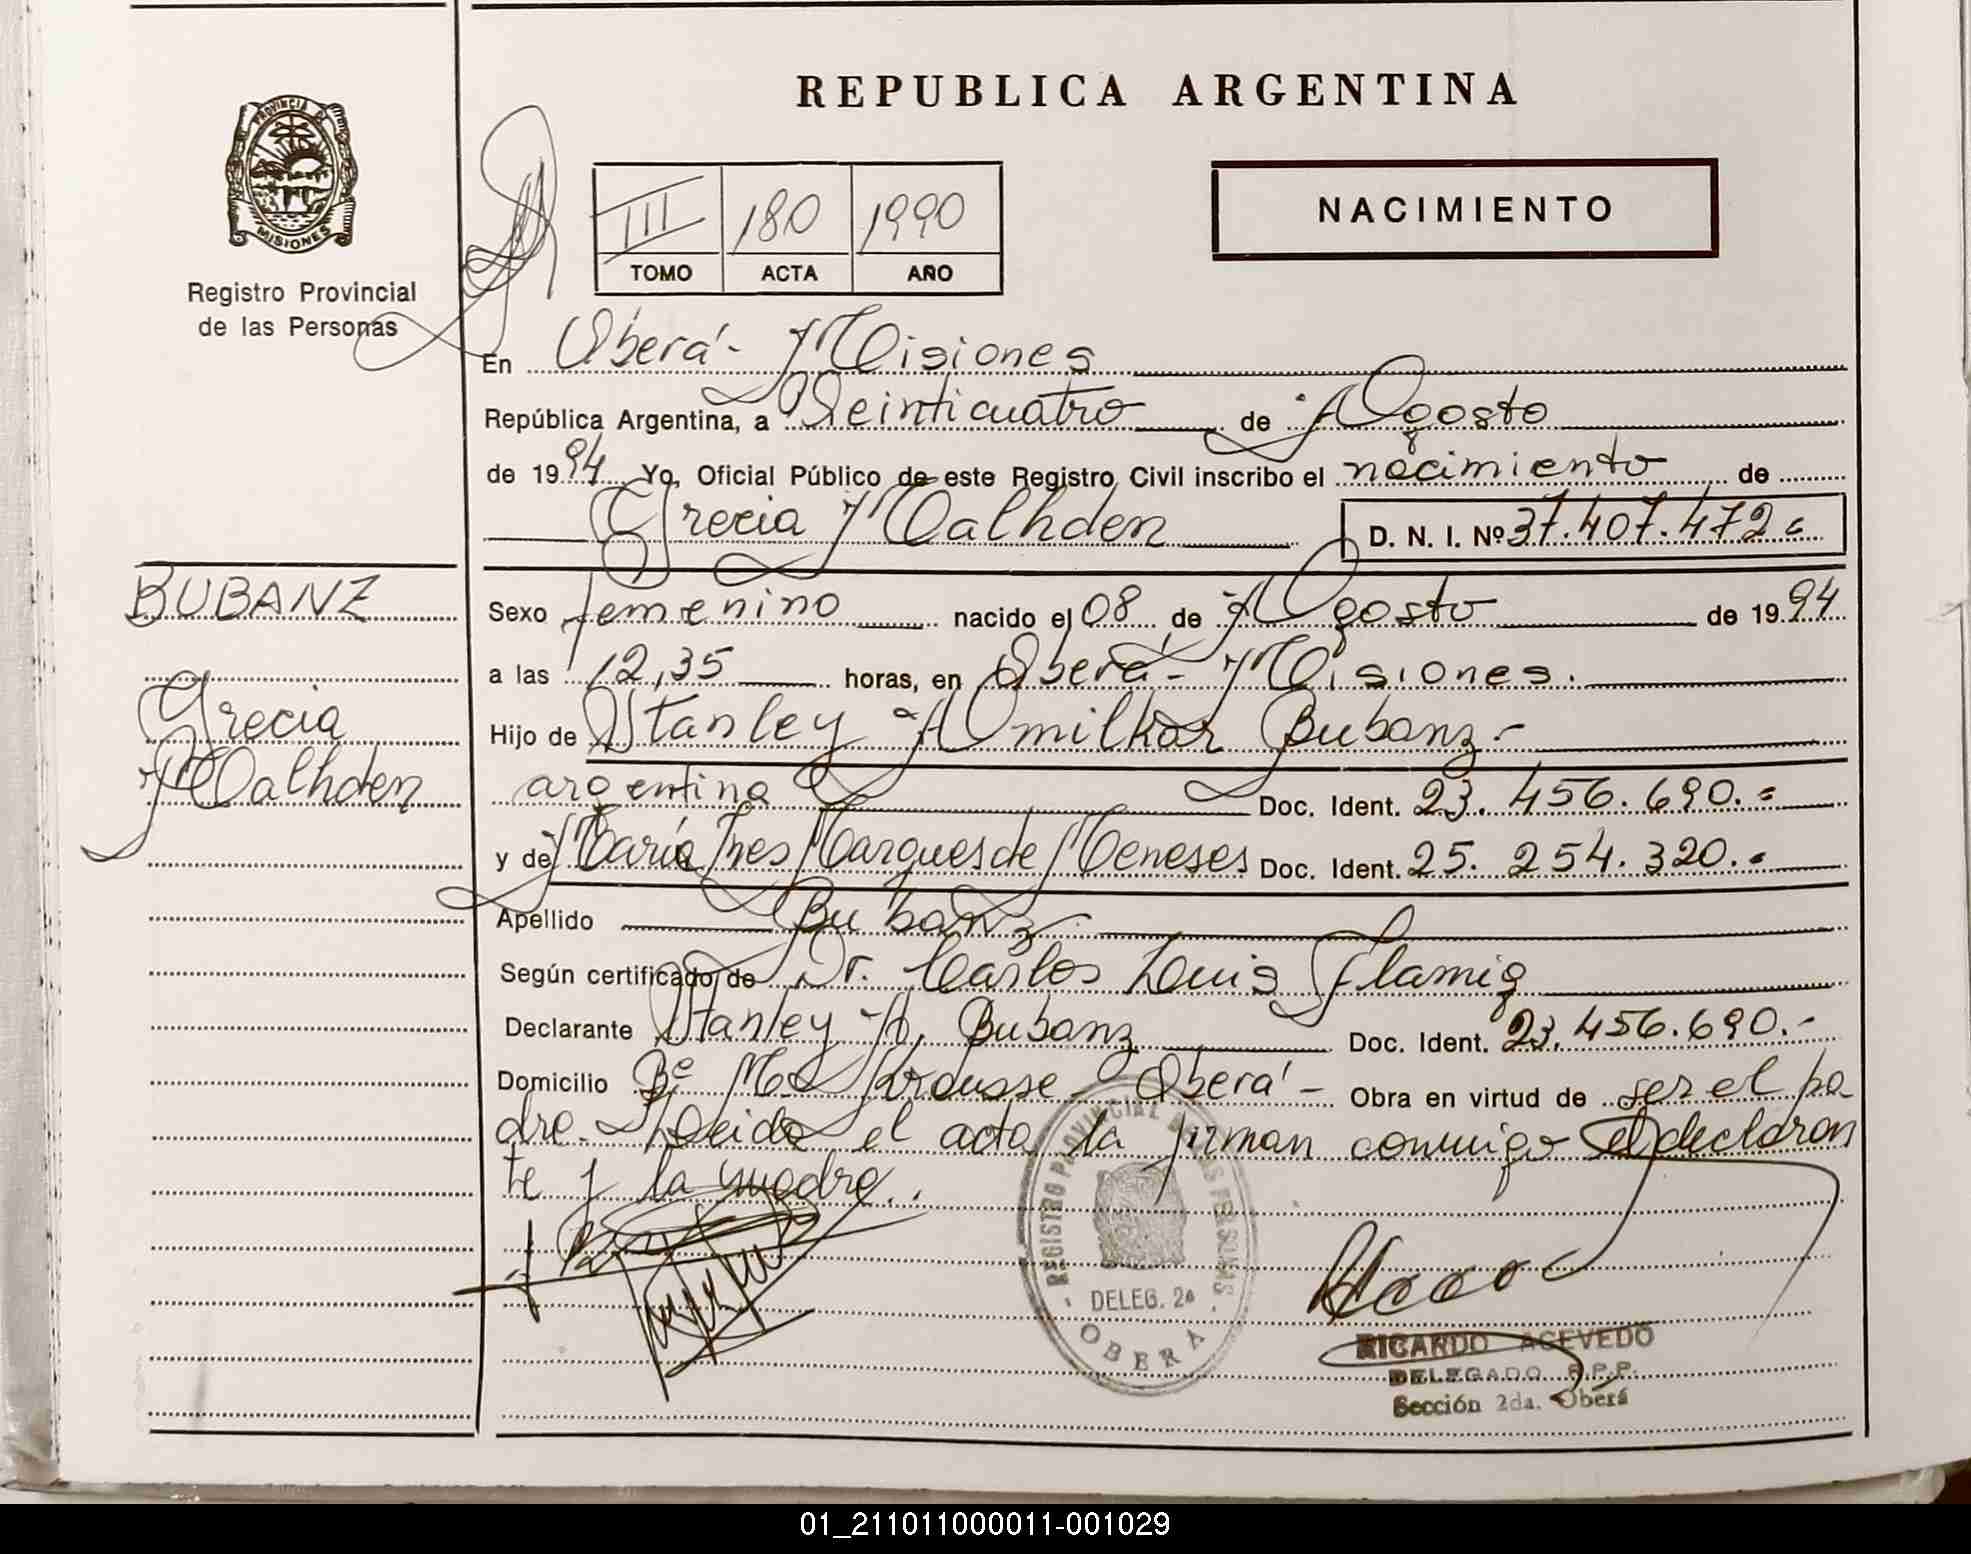 REPUBLICA ARGENTINA
PROVINCIA DE MISIONES
Registro Provincial
de las Personas
III 180 1990
TOMO ACTA AÑO
NACIMIENTO
En Oberá - Misiones
República Argentina, a Veinticuatro de Agosto
de 1994 Yo, Oficial Público de este Registro Civil inscribo el nacimiento de
Grecia Malhden D. N. I. Nº 37.407.472
BUBANZ
Grecia
Malhden
Sexo femenino nacido el 08 de Agosto de 1994
a las 12,35 horas, en Oberá - Misiones.
Hijo de Stanley Amilkar Bubanz -
argentina Doc. Ident. 23.456.690.-
y de María Ines Marques de Meneses Doc. Ident. 25.254.320.-
Apellido Bubanz
Según certificado de Dr. Carlos Luis Flamig
Declarante Stanley A. Bubanz Doc. Ident. 23.456.690.-
Domicilio Bº Krausse - Oberá - Obra en virtud de ser el pa-
dre. Leida el acta la firman conmigo el declaran
te y la madre.
REGISTRO PROVINCIAL DE LAS PERSONAS
DELEG. 2a
OBERA
RICARDO ACEVEDO
DELEGADO R.P.P.
Sección 2da. Oberá
01_211011000011-001029